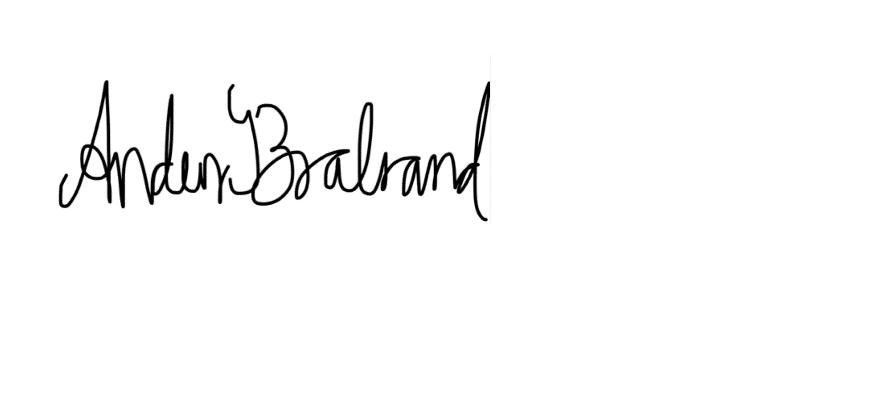 Ander Bralrand